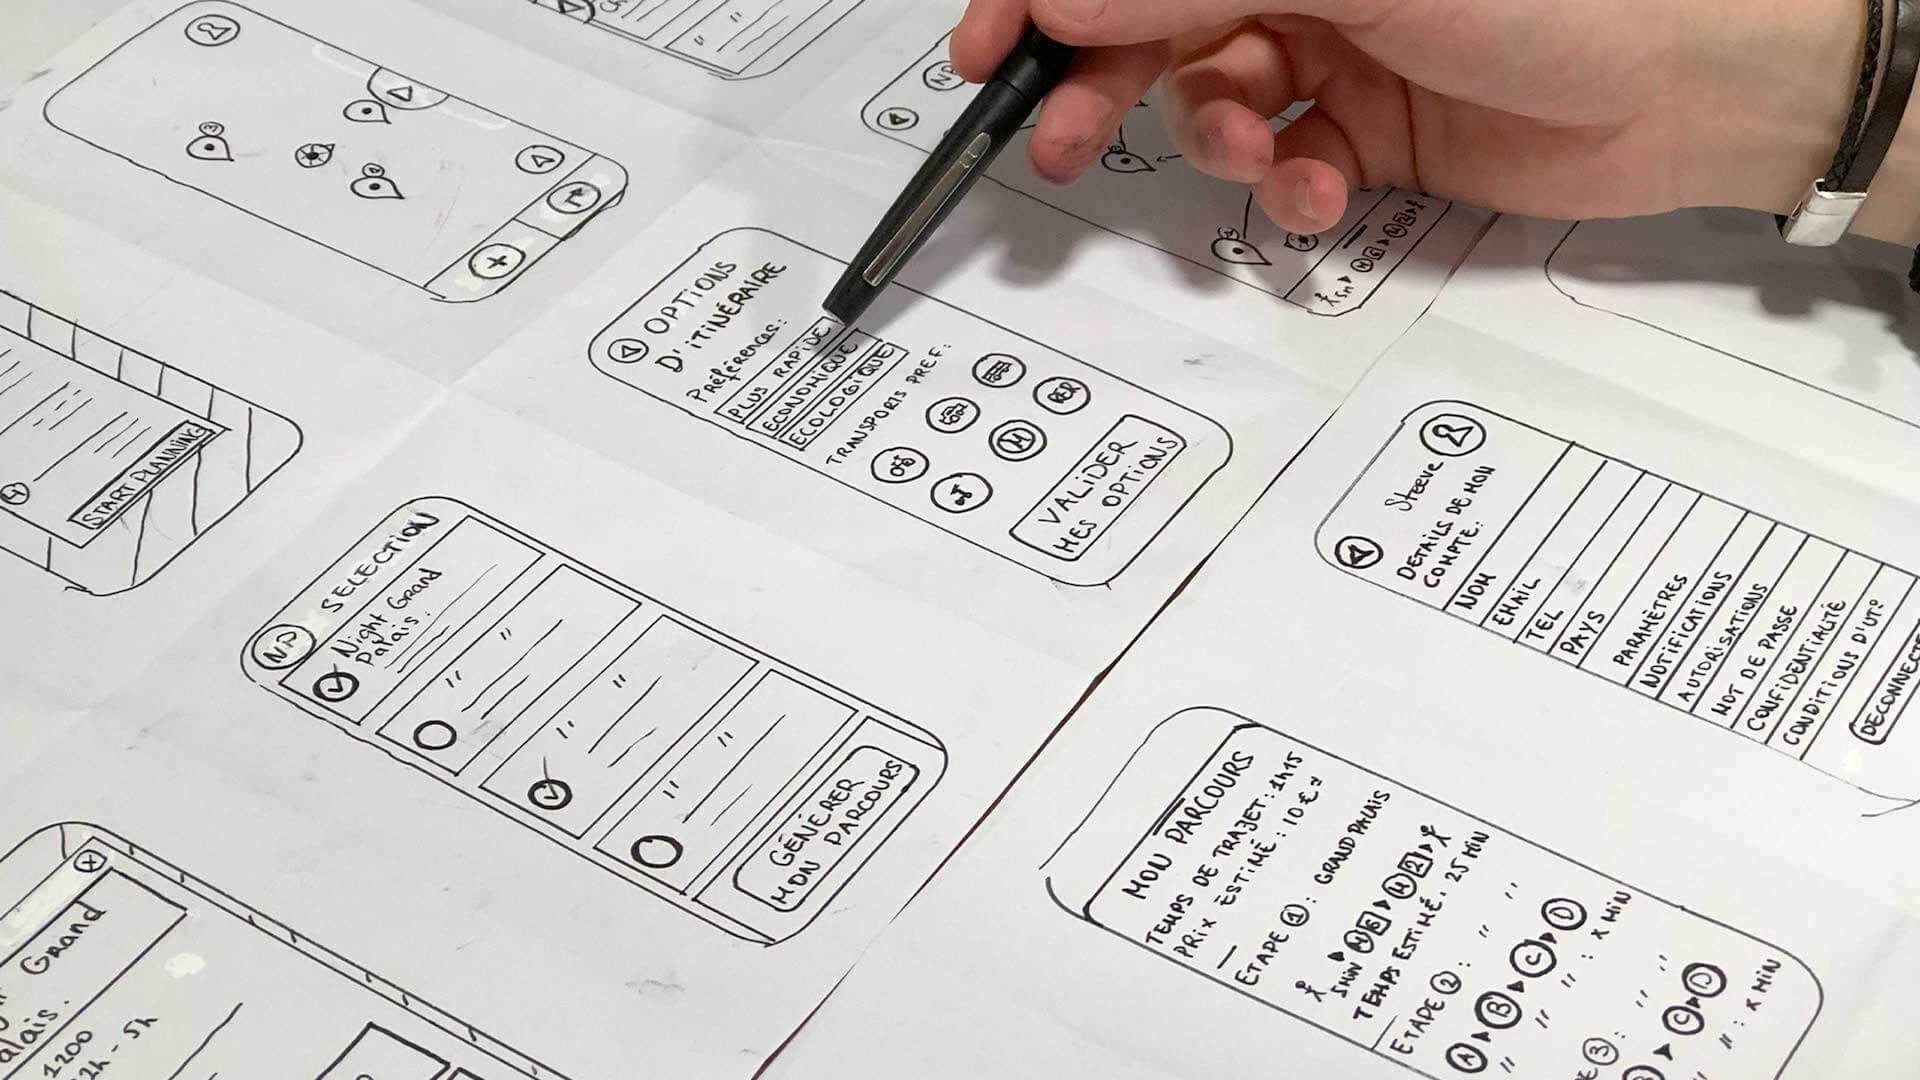 OPTIONS
D'iTiNÉRAIRE
Préférences:
PLUS RAPiDE
ECONOMiQUE
ECOLOGiQUE
TRANSPORTS PREF:
RER
M
VALiDER
MES OPTIONS
START PLANNING
NP
SELECTION
Night Grand
Palais:
GÉNÉRER
MON PARCOURS
Steeve
DETAILS DE MON
COMPTE:
NOM
EMAiL
TEL
PAYS
PARAMÈTRES
NOTiFiCATIONS
AUTORiSATIONS
MOT DE PASSE
CONFiDENTiALiTÉ
CONDiTiONS D'UT°
MON PARCOURS
TEMPS DE TRAJET: 1h15
PRiX ESTiMÉ: 10€
ETAPE 1: GRAND PALAIS
5MiN M 6 M 2
TEMPS ESTiMÉ: 25 MiN
ETAPE 2: " "
A B C D
" " : x MiN
3: " "
C D
" : x MiN
Grand
1200
5h